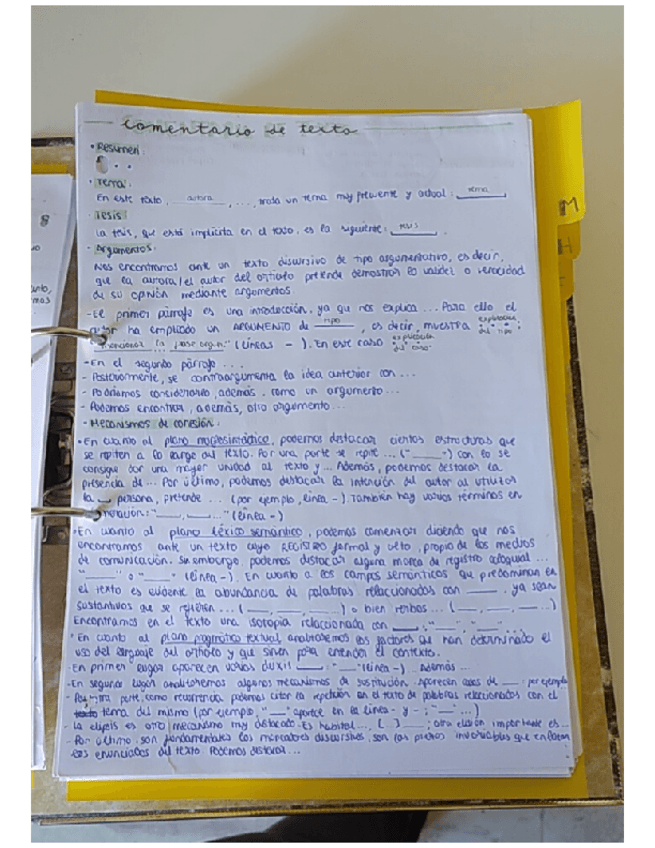 Comentario de texto
• Resumen:
• Tema:
En este texto, autora, ..., trata un tema muy presente y actual: tema
- Tesis
La tesis, que está implícita en el texto, es la siguiente: tesis.
- Argumentos:
Nos encontramos ante un texto discursivo de tipo argumentativo, es decir,
que la autora/el autor del artículo pretende demostrar la validez o veracidad
de su opinión mediante argumentos.
- El primer párrafo es una introducción, ya que nos explica ... Para ello el
autor ha empleado un ARGUMENTO de tipo, es decir, muestra explicación del tipo
(líneas - ). En este caso explicación del caso
- En el segundo párrafo ...
- Posteriormente, se contraargumenta la idea anterior con ...
- Podríamos considerarlo, además, como un argumento ...
- Podemos encontrar, además, otro argumento ...
- Mecanismos de cohesión:
• En cuanto al plano morfosintáctico, podemos destacar ciertas estructuras que
se repiten a lo largo del texto. Por una parte se repite ... ("___" -) con lo se
consigue dar una mayor unidad al texto y ... Además, podemos destacar la
presencia de ... Por último, podemos destacar la intención del autor al utilizar
la __ persona, pretende ... (por ejemplo, línea -). También hay varios términos en
: "___, ___..." (línea -)
• En cuanto al plano léxico semántico, podemos comenzar diciendo que nos
encontramos ante un texto cuyo REGISTRO formal y culto, propio de los medios
de comunicación. Sin embargo podemos destacar alguna marca de registro coloquial ...
"___" o "___" (línea -). En cuanto a los campos semánticos que predominan en
el texto es evidente la abundancia de palabras relacionadas con ___, ya sean
sustantivos que se refieren ... (___, ___, ___) o bien verbos ... (___, ___, ...)
Encontramos en el texto una isotopía relacionada con ___: "___", "___" ...
• En cuanto al plano pragmático textual analizaremos los factores que han determinado el
uso del lenguaje del artículo y que sirven para entender el contexto.
- En primer lugar aparecen varias ___: "___" (línea -) Además ...
- En segundo lugar analizaremos algunos mecanismos de sustitución. Aparecen casos de ___: por ejemplo
- Por otra parte, como recurrencia podemos citar la repetición en el texto de palabras relacionadas con el
tema del mismo (por ejemplo, "___" aparece en la línea - y - ; "___" ...)
- La elipsis es otro mecanismo muy destacado. Es habitual ..., ( ) ___; otra elisión importante es ...
- Por último, son fundamentales los marcadores discursivos, son las piezas invariables que enlazan
los enunciados del texto. Podemos destacar ...
M
H